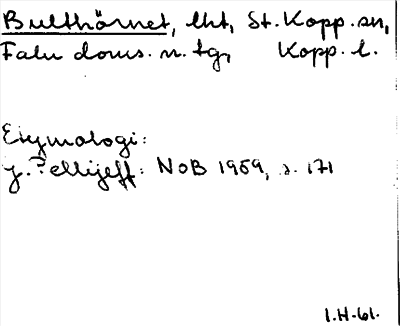 Bulthörnet, lht, St. Kopp. sn,
Falu doms. n. tg, Kopp. l.
Etymologi:
J. ?ellijeff: NoB 1959, s. 171
1.H-61.